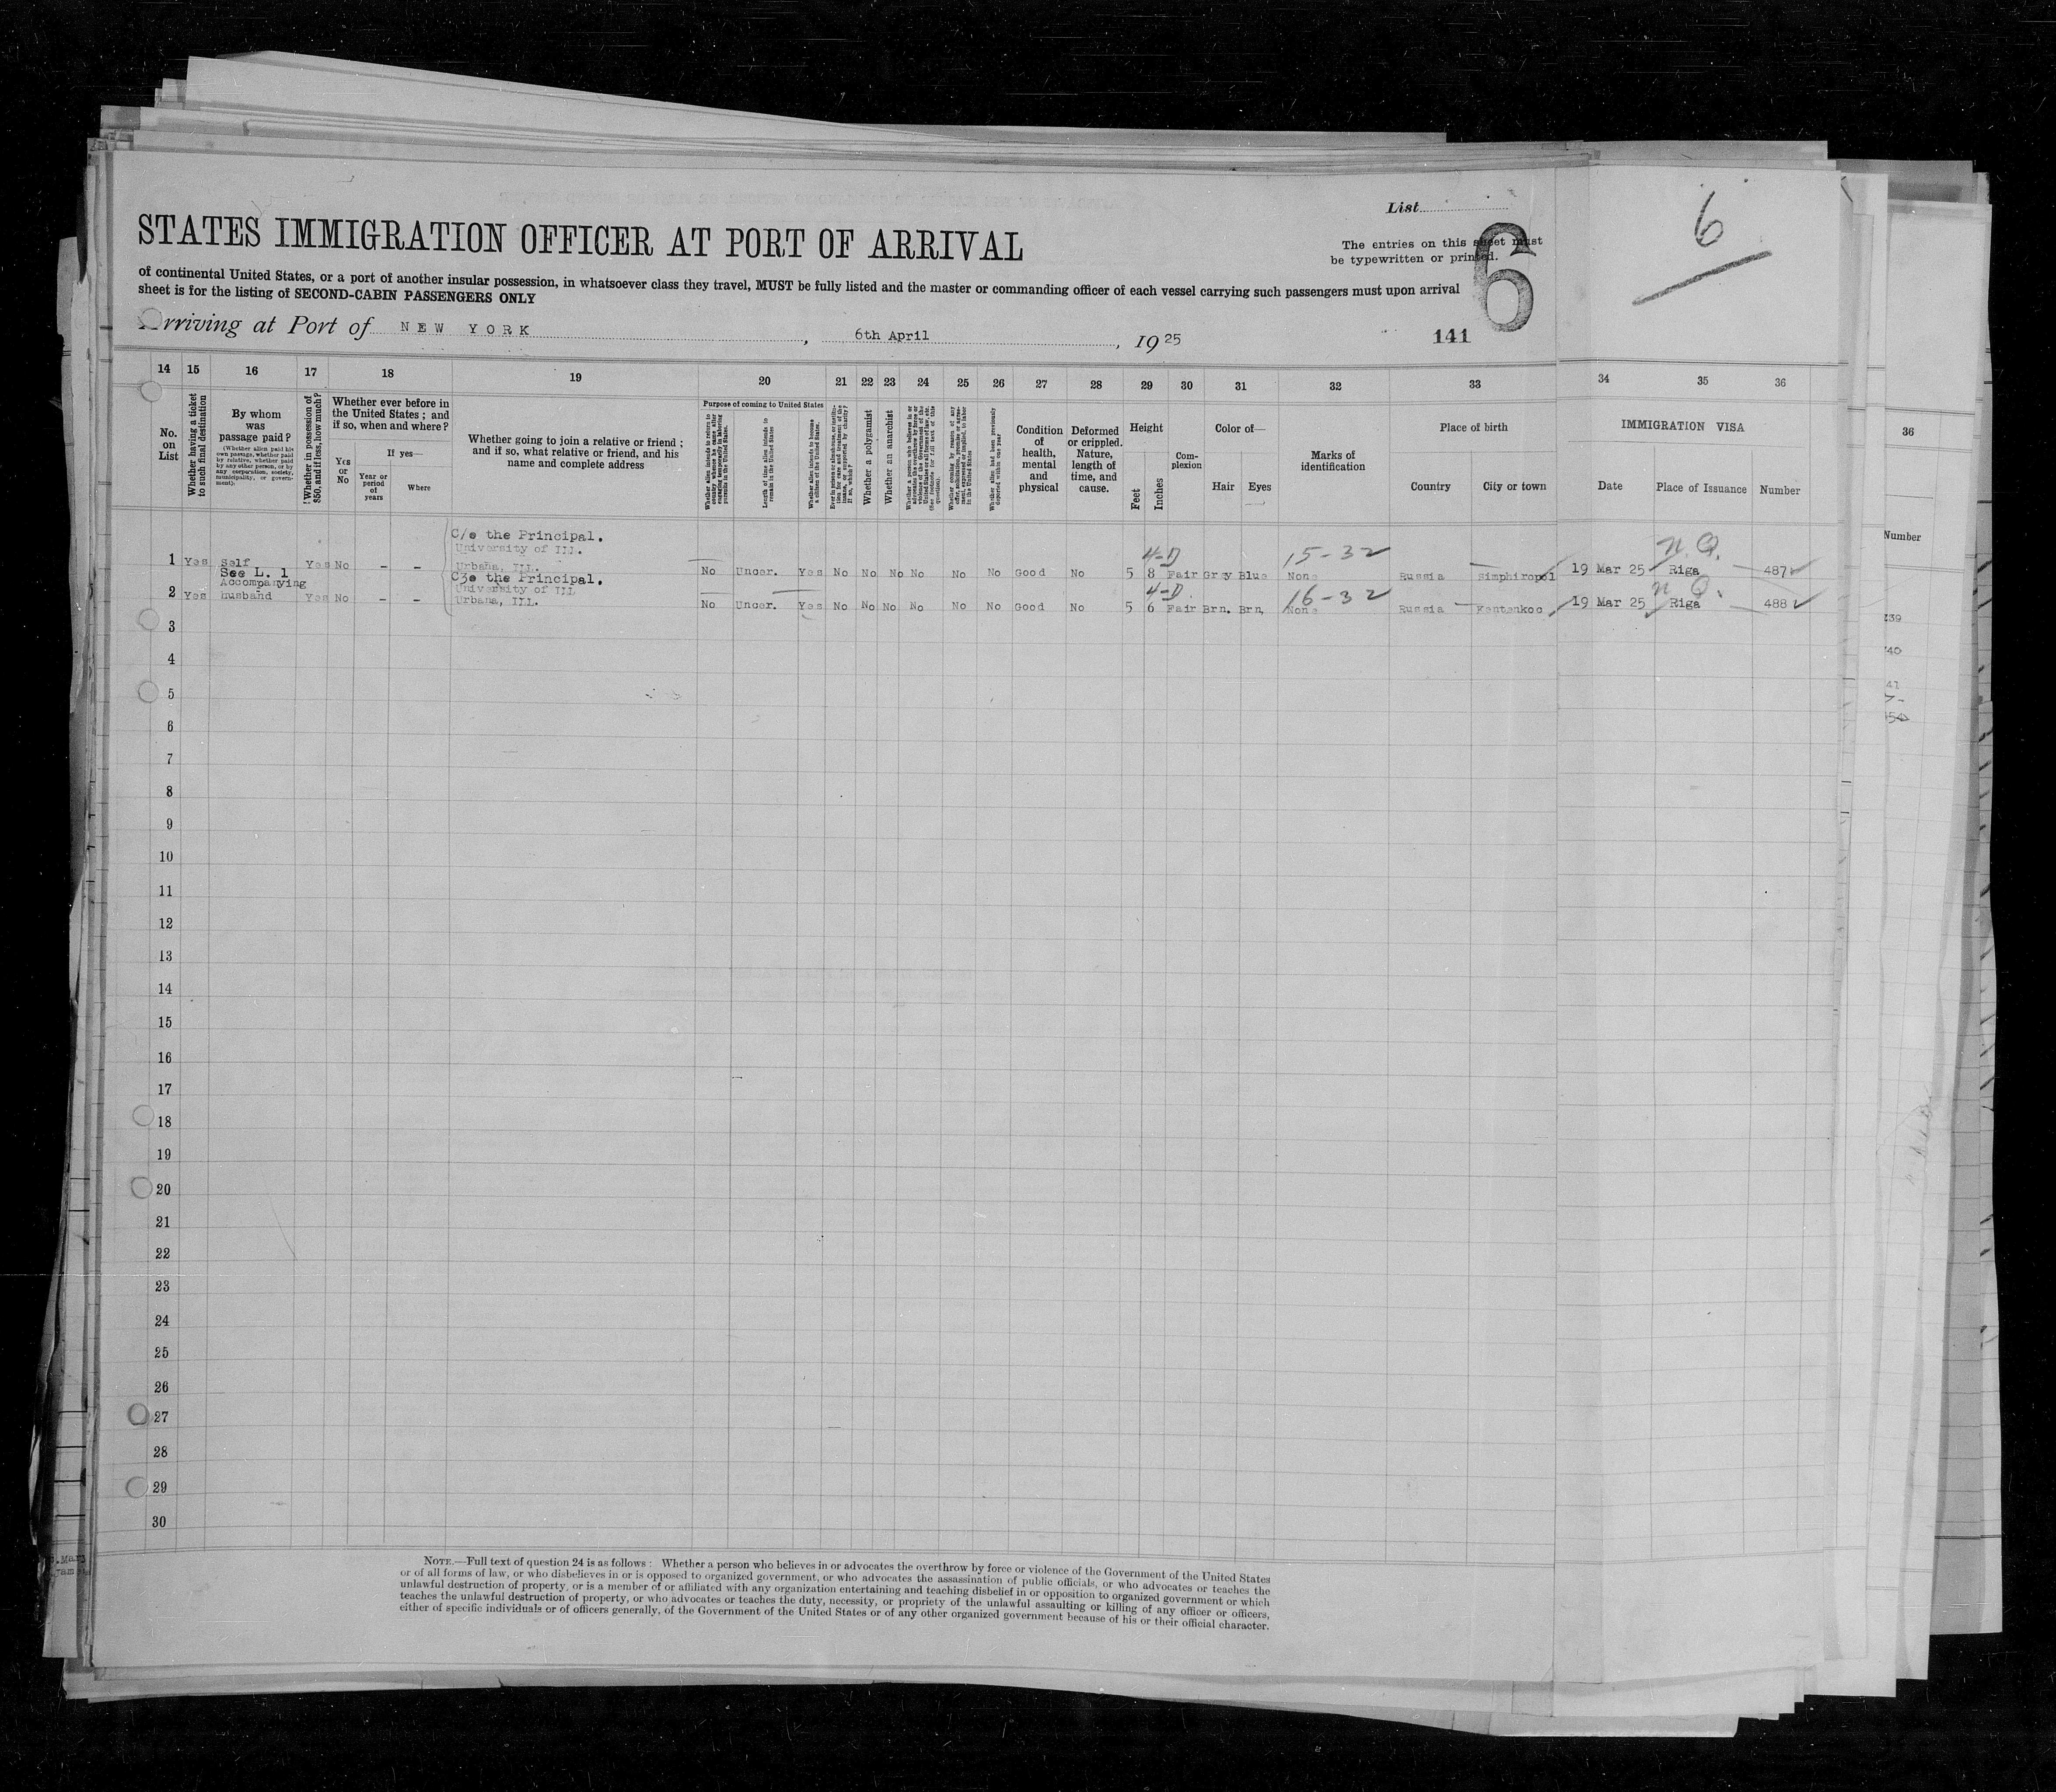 List
6
6
STATES IMMIGRATION OFFICER AT PORT OF ARRIVAL
The entries on this sheet must
be typewritten or printed.
of continental United States, or a port of another insular possession, in whatsoever class they travel, MUST be fully listed and the master or commanding officer of each vessel carrying such passengers must upon arrival
sheet is for the listing of SECOND-CABIN PASSENGERS ONLY
Arriving at Port of NEW YORK, 6th April, 1925
141
14 15 16 17 18 19 20 21 22 23 24 25 26 27 28 29 30 31 32 33 34 35 36
No. on List
Whether having a ticket to such final destination
By whom was passage paid?
(Whether alien paid his own passage, whether paid by relative, whether paid by any other person, or by any corporation, society, municipality, or government).
Whether in possession of $50, and if less, how much?
Whether ever before in the United States; and if so, when and where?
Yes or No
If yes—
Year or period of years
Where
Whether going to join a relative or friend; and if so, what relative or friend, and his name and complete address
Purpose of coming to United States
Length of time alien intends to remain in the United States
Whether alien intends to become a citizen of the United States.
Whether a polygamist
Whether an anarchist
Whether alien had been previously deported within one year
Condition of health, mental and physical
Deformed or crippled. Nature, length of time, and cause.
Height
Feet
Inches
Complexion
Color of—
Hair
Eyes
Marks of identification
Place of birth
Country
City or town
IMMIGRATION VISA
Date
Place of Issuance
Number
36
Number
C/o the Principal.
University of Ill.
1 Yes Self Yes No - - Urbana, Ill. No Uncer. Yes No No No No No No Good No 5 8 Fair Gray Blue None Russia Simphiropol 19 Mar 25 Riga 487
4-D 15-32 N.Q.
See L. 1
Accompanying
C3o the Principal.
University of Ill
2 Yes husband Yes No - - Urbana, Ill. No Uncer. Yes No No No No No No Good No 5 6 Fair Brn. Brn, None Russia 19 Mar 25 Riga 488
4-D 16-32 N.Q.
3
4
5
6
7
8
9
10
11
12
13
14
15
16
17
18
19
20
21
22
23
24
25
26
27
28
29
30
NOTE.—Full text of question 24 is as follows: Whether a person who believes in or advocates the overthrow by force or violence of the Government of the United States
or of all forms of law, or who disbelieves in or is opposed to organized government, or who advocates the assassination of public officials, or who advocates or teaches the
unlawful destruction of property, or is a member of or affiliated with any organization entertaining and teaching disbelief in or opposition to organized government or which
teaches the unlawful destruction of property, or who advocates or teaches the duty, necessity, or propriety of the unlawful assaulting or killing of any officer or officers,
either of specific individuals or of officers generally, of the Government of the United States or of any other organized government because of his or their official character.